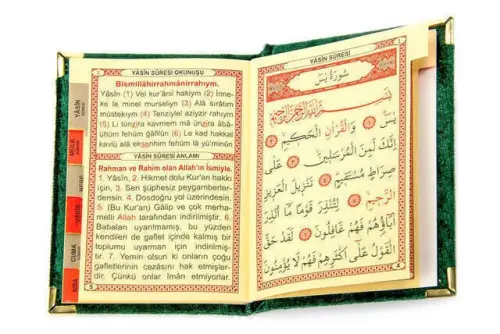 YÂSÎN SÛRESİ OKUNUŞU
Bismillâhirrahmânirrahym.
Yâsîn (1) Vel kur'ânil hakîym (2) İnne-
ke le minel murseliyn (3) Alâ sırâtım
müstekıym (4) Tenziylel azîyzir rahıym
(5) Li tünzira kavmem mâ ünzira âbâ-
ühüm fehüm ğâfilûn (6) Le kad hakkal
kavlü alâ ekserihim fehüm lâ yü'minûn
YÂSÎN SÛRESİ ANLAMI
Rahman ve Rahim olan Allah'ın İsmiyle.
1. Yâsîn. 2. Hikmet dolu Kur'an hakkı
için, 3. Sen şüphesiz peygamberler-
densin. 4. Dosdoğru yol üzerindesin.
5. (Bu Kur'an) Galip ve çok merha-
metli Allah tarafından indirilmiştir. 6.
Babaları uyarılmamış, bu yüzden
kendileri de gaflet içinde kalmış bir
toplumu uyarman için indirilmiş-
tir. 7. Yemin olsun ki onların çoğu
gafletlerinin cezasını hak etmişler-
dir. Çünkü onlar İman etmiyorlar.
5
YÂSÎN
MÜLK
CUMA
KISA
YÂSÎN SÛRESİ
سُورَةُ يٰسٓ
يٰسٓ وَالْقُرْاٰنِ الْحَكِيمِ
اِنَّكَ لَمِنَ الْمُرْسَلِينَ عَلٰى
صِرَاطٍ مُسْتَقِيمٍ تَنْزِيلَ الْعَزِيزِ
الرَّحِيمِ لِتُنْذِرَ قَوْمًا مَٓا اُنْذِرَ
اٰبَٓاؤُهُمْ فَهُمْ غَافِلُونَ لَقَدْ حَقَّ
الْقَوْلُ عَلٰٓى اَكْثَرِهِمْ فَهُمْ لَا يُؤْمِنُونَ
4